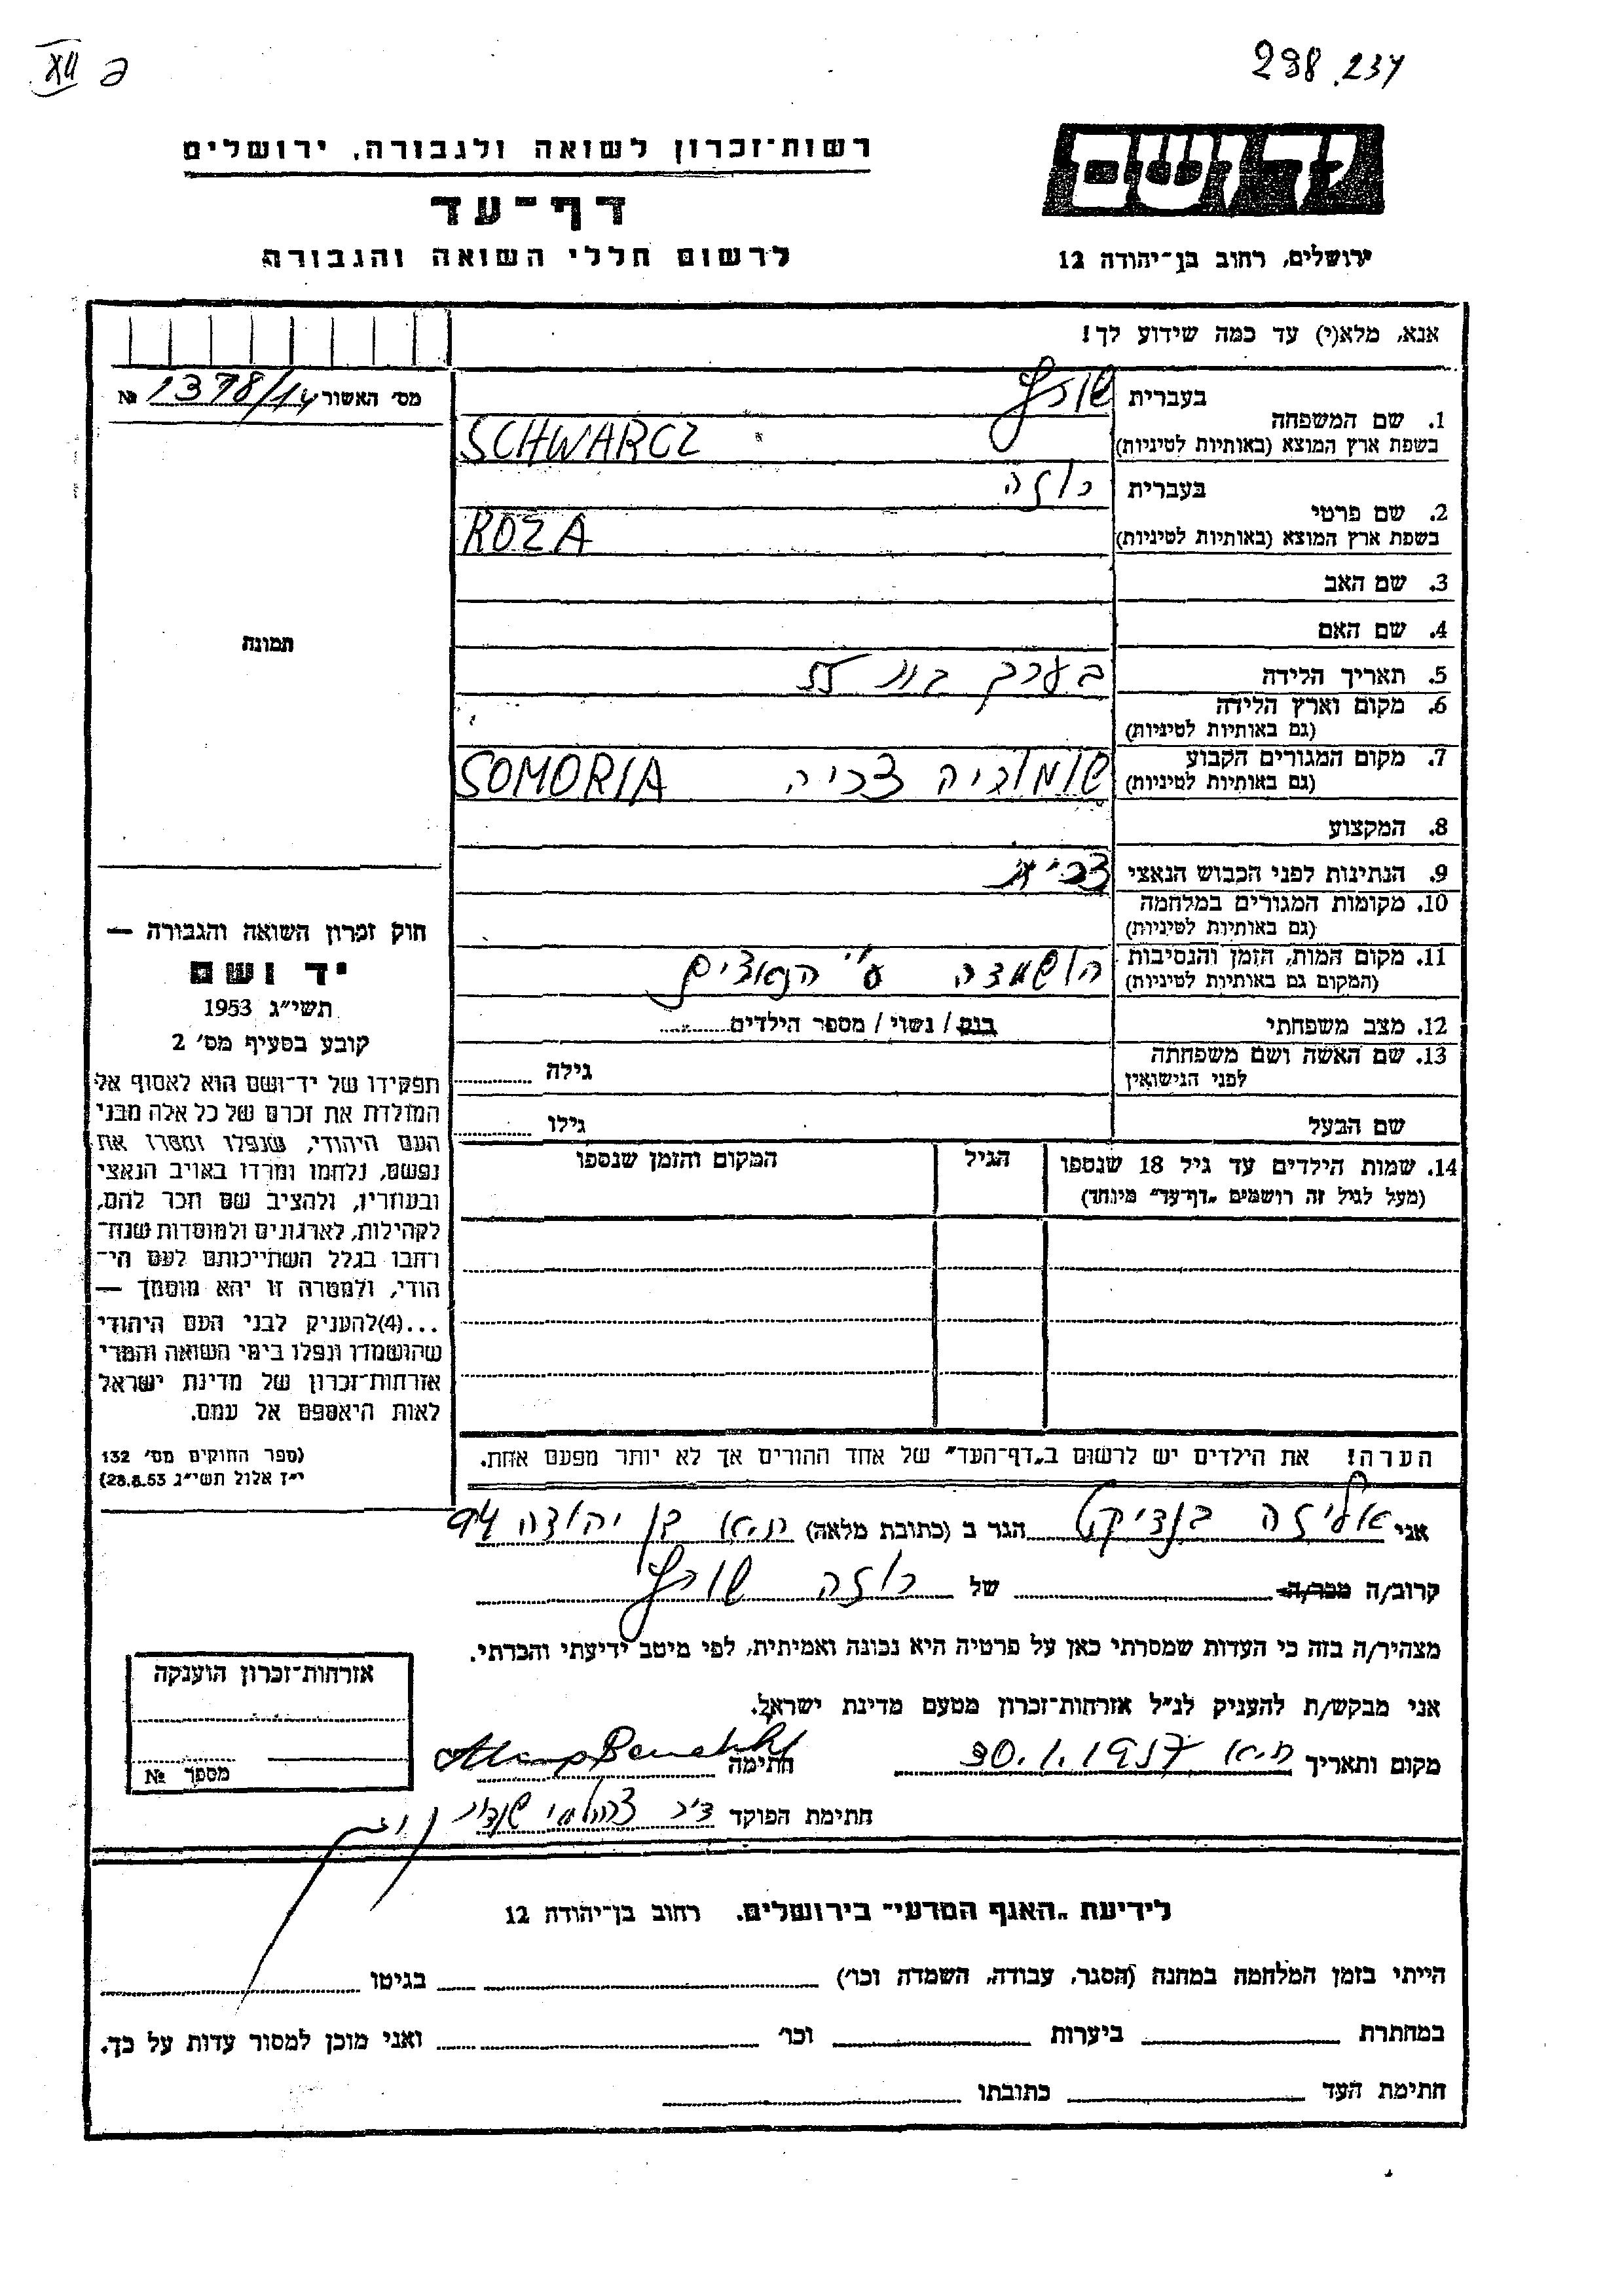 298.237
XII
רשות־זכרון לשואה ולגבורה, ירושלים
יד ושם
דף־עד
לרשום חללי השואה והגבורה
ירושלים, רחוב בן־יהודה 12
אנא, מלא(י) עד כמה שידוע לך!
מס׳ האשור 1378/14 №
תמונה
1. שם המשפחה
בעברית שורץ
בשפת ארץ המוצא (באותיות לטיניות) SCHWARCZ
2. שם פרטי
בעברית רוזה
בשפת ארץ המוצא (באותיות לטיניות) ROZA
3. שם האב
4. שם האם
5. תאריך הלידה בערך בת 55
6. מקום וארץ הלידה
(גם באותיות לטיניות)
7. מקום המגורים הקבוע שומוריה צכיה SOMORIA
(גם באותיות לטיניות)
8. המקצוע
9. הנתינות לפני הכבוש הנאצי צכית
10. מקומות המגורים במלחמה
(גם באותיות לטיניות)
11. מקום המות, הזמן והנסיבות הושמדה ע"י הנאצים
(המקום גם באותיות לטיניות)
12. מצב משפחתי רווק / נשוי / מספר הילדים
13. שם האשה ושם משפחתה גילה
לפני הנישואין
שם הבעל גילו
14. שמות הילדים עד גיל 18 שנספו הגיל המקום והזמן שנספו
(מעל לגיל זה רושמים „דף־עד" מיוחד)
חוק זכרון השואה והגבורה —
יד ושם
תשי״ג 1953
קובע בסעיף מס׳ 2
תפקידו של יד־ושם הוא לאסוף אל
המולדת את זכרם של כל אלה מבני
העם היהודי, שנפלו ומסרו את
נפשם, נלחמו ומרדו באויב הנאצי
ובעוזריו, ולהציב שם וזכר להם,
לקהילות, לארגונים ולמוסדות שנח־
רבו בגלל השתייכותם לעם הי־
הודי, ולמטרה זו יהא מוסמך —
...(4)להעניק לבני העם היהודי
שהושמדו ונפלו בימי השואה והמרי
אזרחות־זכרון של מדינת ישראל
לאות היאספם אל עמם.
(ספר החוקים מס׳ 132
י״ז אלול תשי״ג 28.8.53)
הערה! את הילדים יש לרשום ב„דף־העד" של אחד ההורים אך לא יותר מפעם אחת.
אני אליזה בנדיקט הגר ב (כתובת מלאה) ת.א בן יהודה 94
קרוב/ה מכר/ה של רוזה שורץ
מצהיר/ה בזה כי העדות שמסרתי כאן על פרטיה היא נכונה ואמיתית, לפי מיטב ידיעתי והכרתי.
אני מבקש/ת להעניק לנ״ל אזרחות־זכרון מטעם מדינת ישראל.
מקום ותאריך ת.א 30.1.1957 חתימה
חתימת הפוקד
אזרחות־זכרון הוענקה
מספר №
לידיעת „האגף המדעי" בירושלים, רחוב בן־יהודה 12
הייתי בזמן המלחמה במחנה (הסגר, עבודה, השמדה וכו׳) בגיטו
במחתרת ביערות וכו׳ ואני מוכן למסור עדות על כך.
חתימת העד כתובתו